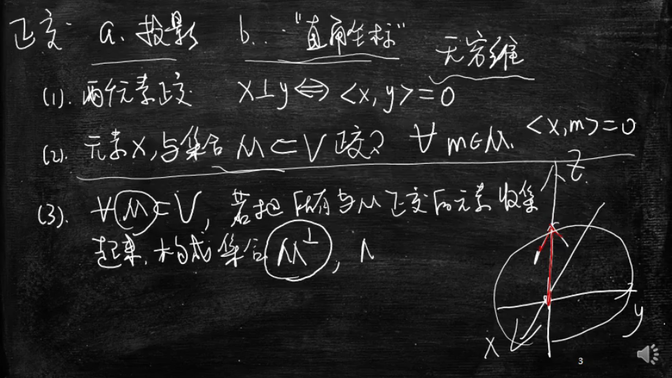 正交: a. 投影 b... "直角坐标" 无穷维
(1). 两个元素正交 x⊥y ⇔ <x, y> = 0
(2). 元素x, 与集合 M⊂V 正交? ∀ m∈M. <x, m> = 0
(3). ∀ M⊂V, 若把所有与M正交的元素收集
起来, 构成集合 M⊥, M
Z
y
x
3